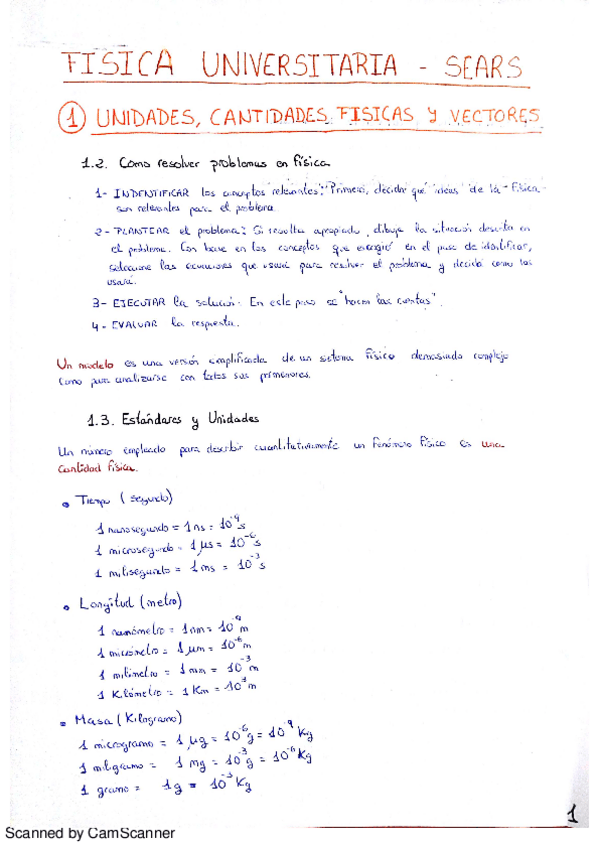 FISICA UNIVERSITARIA - SEARS
1 UNIDADES, CANTIDADES FISICAS Y VECTORES
1.2. Como resolver problemas en física
1- INDENTIFICAR los conceptos relevantes: Primero, decidir qué ideas de la física
son relevantes para el problema
2- PLANTEAR el problema: Si resulta apropiado, dibuje la situación descrita en
el problema. Con base en los conceptos que escogió en el paso de identificar,
seleccione las ecuaciones que usará para resolver el problema y decida como las
usará.
3- EJECUTAR la solución. En este paso se "hacen las cuentas".
4- EVALUAR la respuesta.
Un modelo es una versión simplificada de un sistema físico demasiado complejo
como para analizarse con todos sus pormenores.
1.3. Estándares y Unidades
Un número empleado para describir cuantitativamente un fenómeno físico es una
cantidad física.
• Tiempo (segundo)
1 nanosegundo = 1 ns = 10⁻⁹ s
1 microsegundo = 1 μs = 10⁻⁶ s
1 milisegundo = 1 ms = 10⁻³ s
• Longitud (metro)
1 nanómetro = 1 nm = 10⁻⁹ m
1 micrómetro = 1 μm = 10⁻⁶ m
1 milímetro = 1 mm = 10⁻³ m
1 Kilómetro = 1 Km = 10³ m
• Masa (Kilogramo)
1 microgramo = 1 μg = 10⁻⁶ g = 10⁻⁹ Kg
1 miligramo = 1 mg = 10⁻³ g = 10⁻⁶ Kg
1 gramo = 1 g = 10⁻³ Kg
1
Scanned by CamScanner